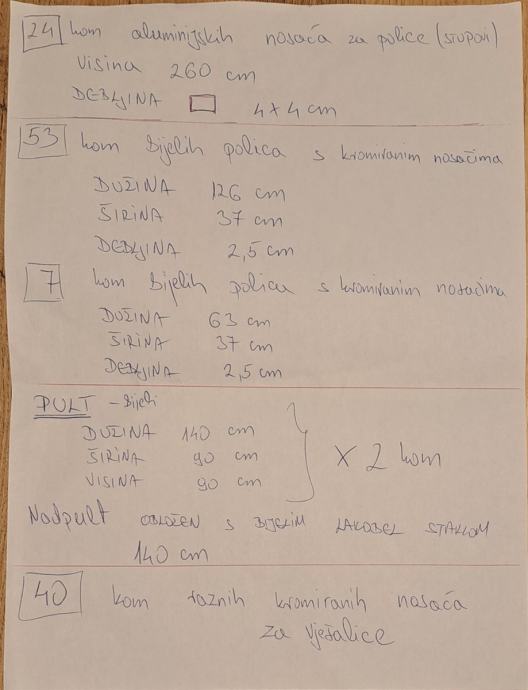 24 kom aluminijskih nosača za police (STUPOVI)
Visina 260 cm
DEBLJINA 4x4 cm
53 kom bijelih polica s kromiranim nosačima
DUŽINA 126 cm
ŠIRINA 37 cm
DEBLJINA 2,5 cm
7 kom bijelih polica s kromiranim nosačima
DUŽINA 63 cm
ŠIRINA 37 cm
DEBLJINA 2,5 cm
PULT - bijeli
DUŽINA 140 cm
ŠIRINA 90 cm
VISINA 90 cm
x 2 kom
Nadpult OBLOŽEN S BIJELIM LAKOBEL STAKLOM
140 cm
40 kom raznih kromiranih nosača
za vješalice